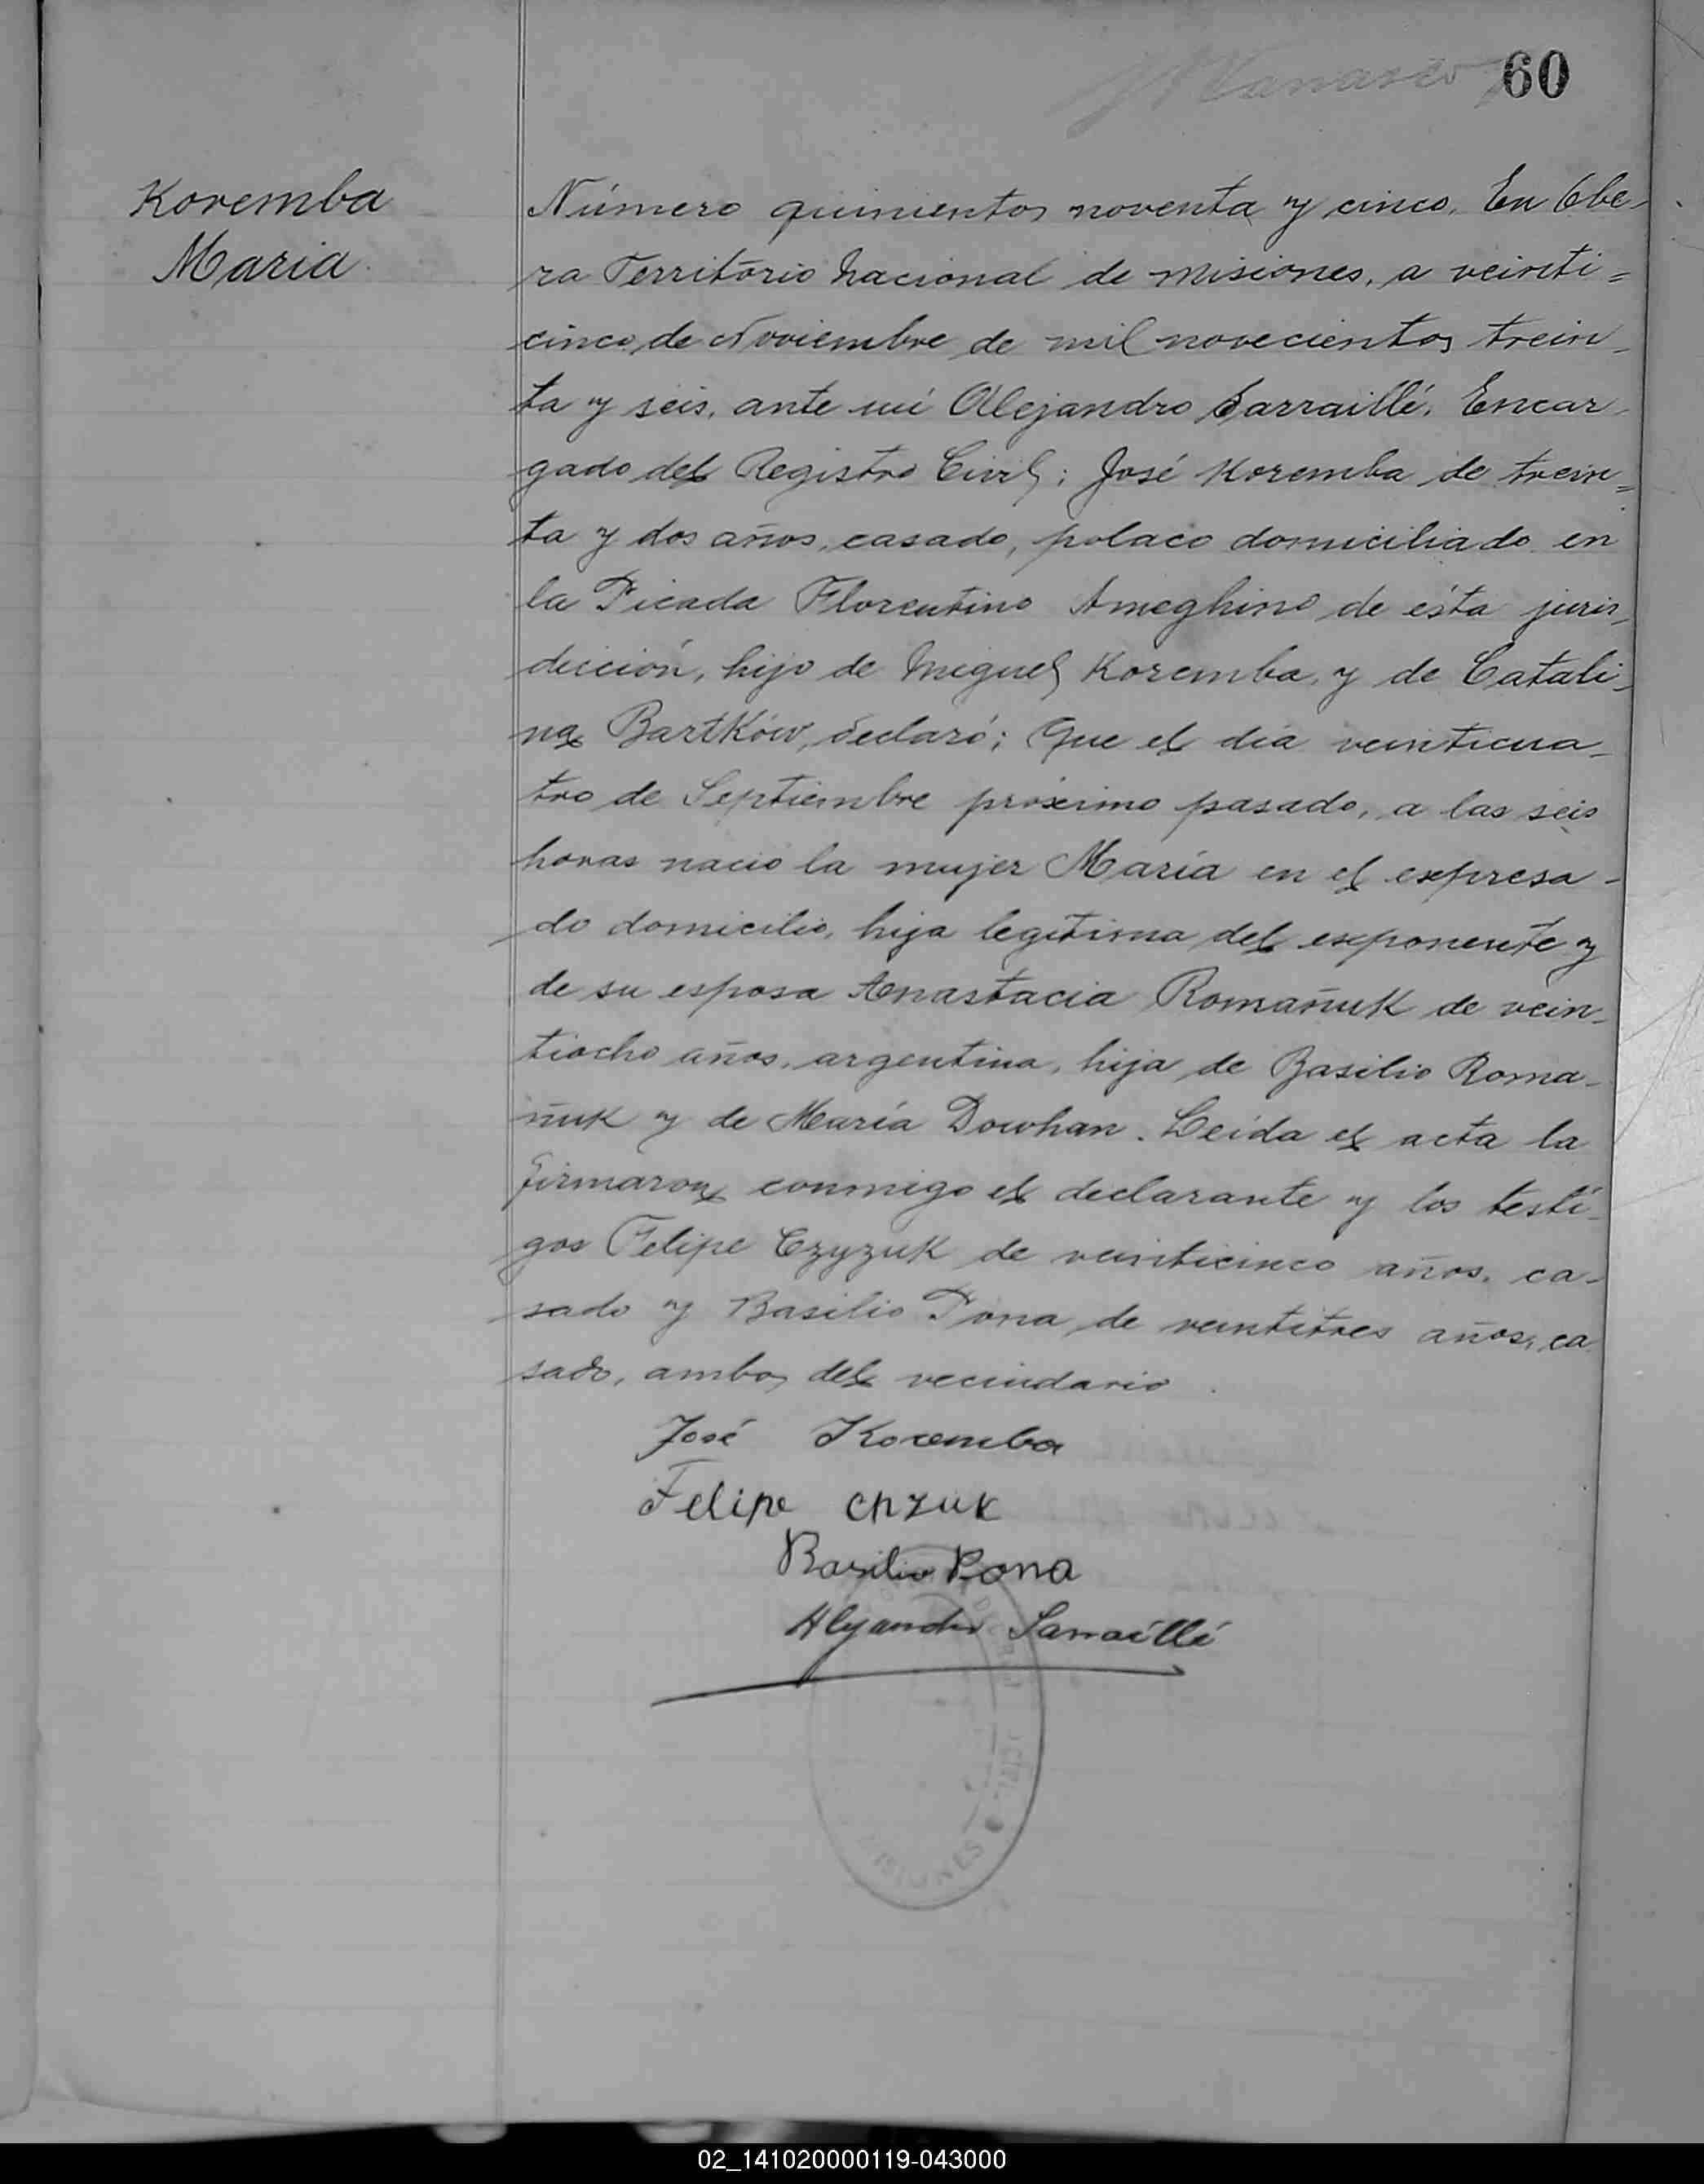 60
Koremba
Maria
Número quinientos noventa y cinco. En Obe-
ra Territorio Nacional de Misiones, a veinti=
cinco de Noviembre de mil novecientos trein-
ta y seis, ante mi Alejandro Sarraillé, Encar-
gado del Registro Civil; José Koremba de trein=
ta y dos años, casado, polaco domiciliado en
la Picada Florentino Ameghino de ésta juris-
dicción, hijo de Miguel Koremba, y de Catali-
na Bartków, declaró; Que el día veinticua-
tro de Septiembre próximo pasado, a las seis
horas nació la mujer María en el expresa-
do domicilio, hija legítima del exponente y
de su esposa Anastacia Romañuk de vein-
tiocho años, argentina, hija de Basilio Roma-
ñuk y de María Dowhan. Leída el acta la
firmaron conmigo el declarante y los testi-
gos Felipe Czyzuk de veinticinco años, ca-
sado y Basilio Pona de veintitres años, ca
sado, ambos del vecindario.
José Koremba
Felipe
Basilio Pona
Alejandro Sarraillé
MISIONES
02_141020000119-043000